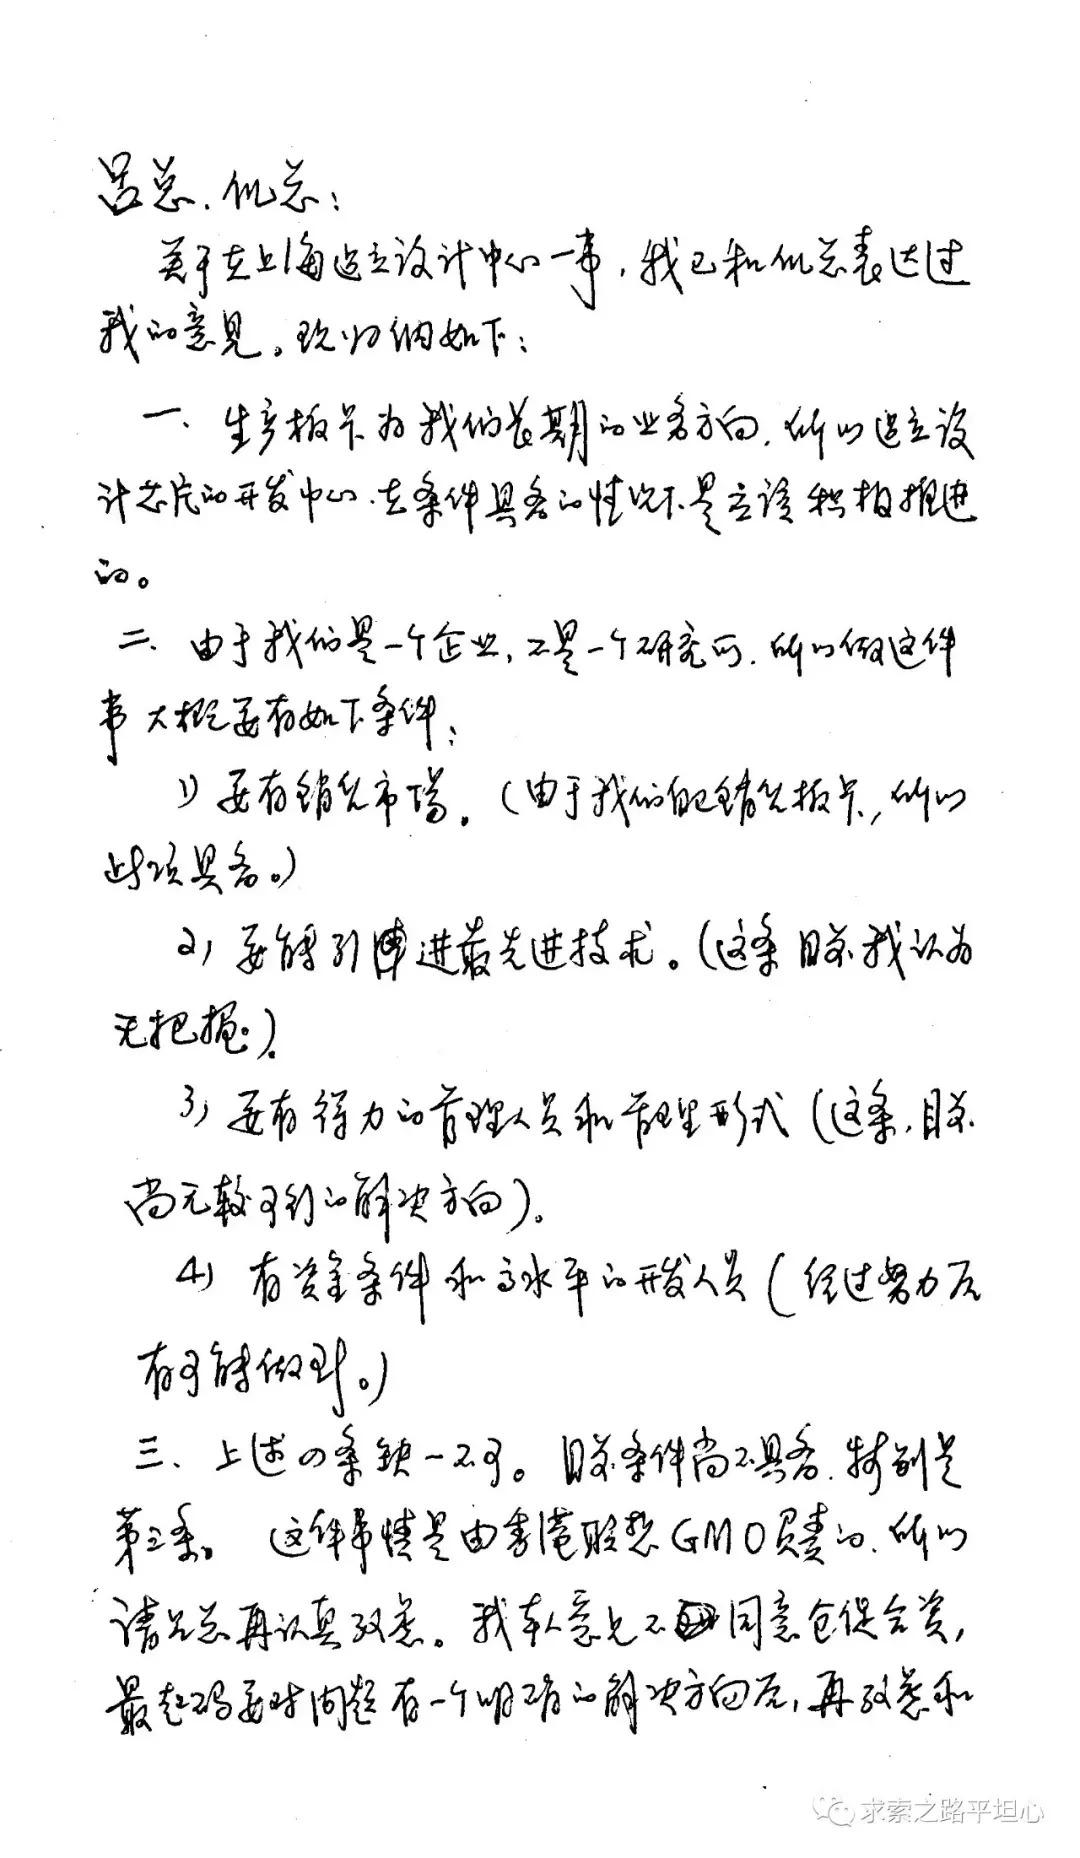 吕总、倪总：
关于在上海建立设计中心一事，我已和倪总表达过
我的意见。现归纳如下：
一、生产板卡为我们长期的业务方向，所以建立设
计芯片的开发中心，在条件具备的情况下是应该积极推进
的。
二、由于我们是一个企业，不是一个研究所，所以做这件
事大概要有如下条件：
1) 要有销售市场。（由于我们自己销售板卡，所以
此项具备。）
2) 要能引进最先进技术。（这条目前我认为
无把握。）
3) 要有得力的管理人员和管理形式（这条，目前
尚无较可行的解决方向）。
4) 有资金条件和高水平的开发人员（经过努力后
有可能做到。）
三、上述四条缺一不可。目前条件尚不具备，特别是
第三条。 这件事情是由香港联想GMO负责的，所以
请吕总再认真考虑。我本人意见不同意仓促合资，
最起码要对问题有一个明确的解决方向后，再考虑和
求索之路平坦心